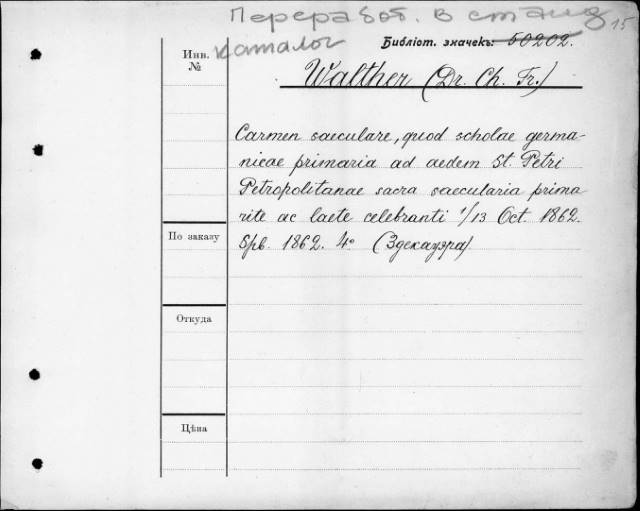 Переработ. в станд
каталог
15
Библіот. значекъ: 50202.
Инв.
№
Walther (Dr. Ch. Fr.)
Carmen saeculare, quod scholae germa-
nicae primaria ad aedem St. Petri
Petropolitanae sacra saecularia prima
rite ac laete celebranti 1/13 Oct. 1862.
Spb. 1862. 4° (Здекауэра)
По заказу
Откуда
Цѣна